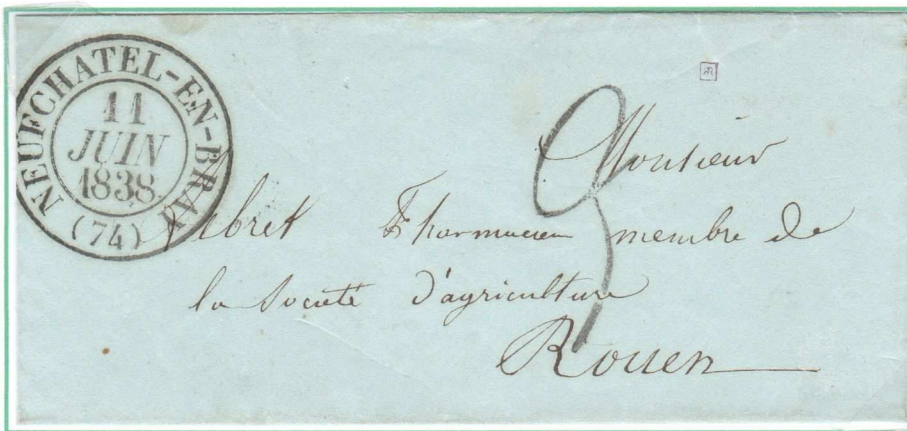 NEUFCHATEL-EN-BRAY
11
JUIN
1838
(74)
3
Monsieur
Pharmacien membre de
la Société d'agriculture
Rouen